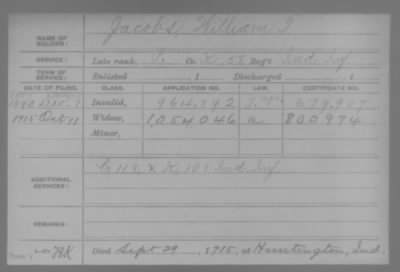 NAME OF SOLDIER: Jacobs, William T.
SERVICE: Late rank, P. Co. K, 58 Reg't Ind Inf
TERM OF SERVICE: Enlisted , 1 Discharged , 1
DATE OF FILING. CLASS. APPLICATION NO. LAW. CERTIFICATE NO.
1890 Dec 1 Invalid, 964,892 679,907
1915 Oct 11 Widow, 1,054,046 a 800974
Minor,
ADDITIONAL SERVICES: Co 118, & K, 101 Ind. Inf
REMARKS:
Died Sept 29, 1915, at Huntington, Ind.